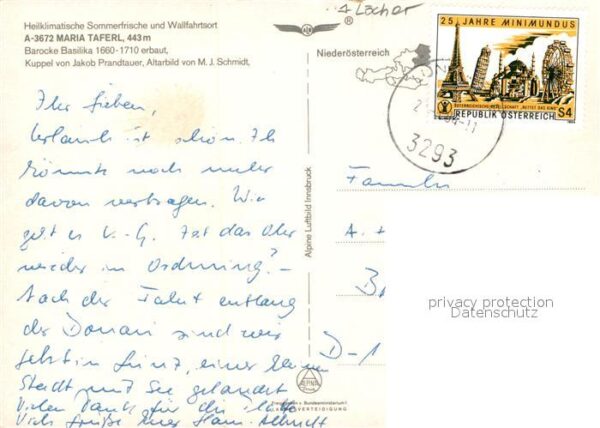 Heilklimatische Sommerfrische und Wallfahrtsort
A-3672 MARIA TAFERL, 443 m
Barocke Basilika 1660-1710 erbaut,
Kuppel von Jakob Prandtauer, Altarbild von M. J. Schmidt.
Ihr Lieben,
Urlaub ist schön. Ich
könnte noch mehr
davon vertragen. Wie
geht es K.-G. Ist das Ohr
wieder in Ordnung? -
Nach der Fahrt entlang
der Donau sind wir
jetzt in Lunz, einer kleinen
Stadt mit See gelandet
Vielen Dank für die
Viele Grüße Hans-Albrecht
4 Löcher
®
Niederösterreich
25 JAHRE MINIMUNDUS
ÖSTERREICHISCHE GESELLSCHAFT "RETTET DAS KIND"
REPUBLIK ÖSTERREICH S4
3293
Alpine Luftbild Innsbruck
Familie
A. +
D-1
privacy protection
Datenschutz
ALPINE
Freigegeben v. Bundesministerium f.
LANDESVERTEIDIGUNG